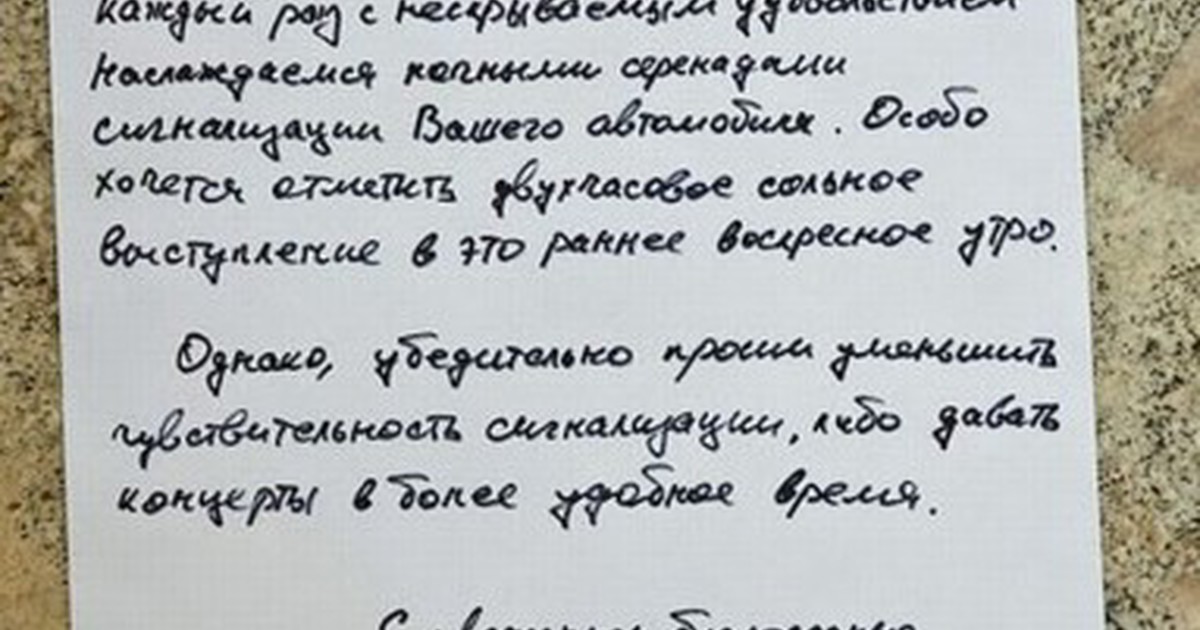 каждый раз с нескрываемым удовольствием
наслаждаемся ночными серенадами
сигнализации Вашего автомобиля. Особо
хочется отметить двухчасовое сольное
выступление в это раннее воскресное утро.
Однако, убедительно просим уменьшить
чувствительность сигнализации, либо давать
концерты в более удобное время.